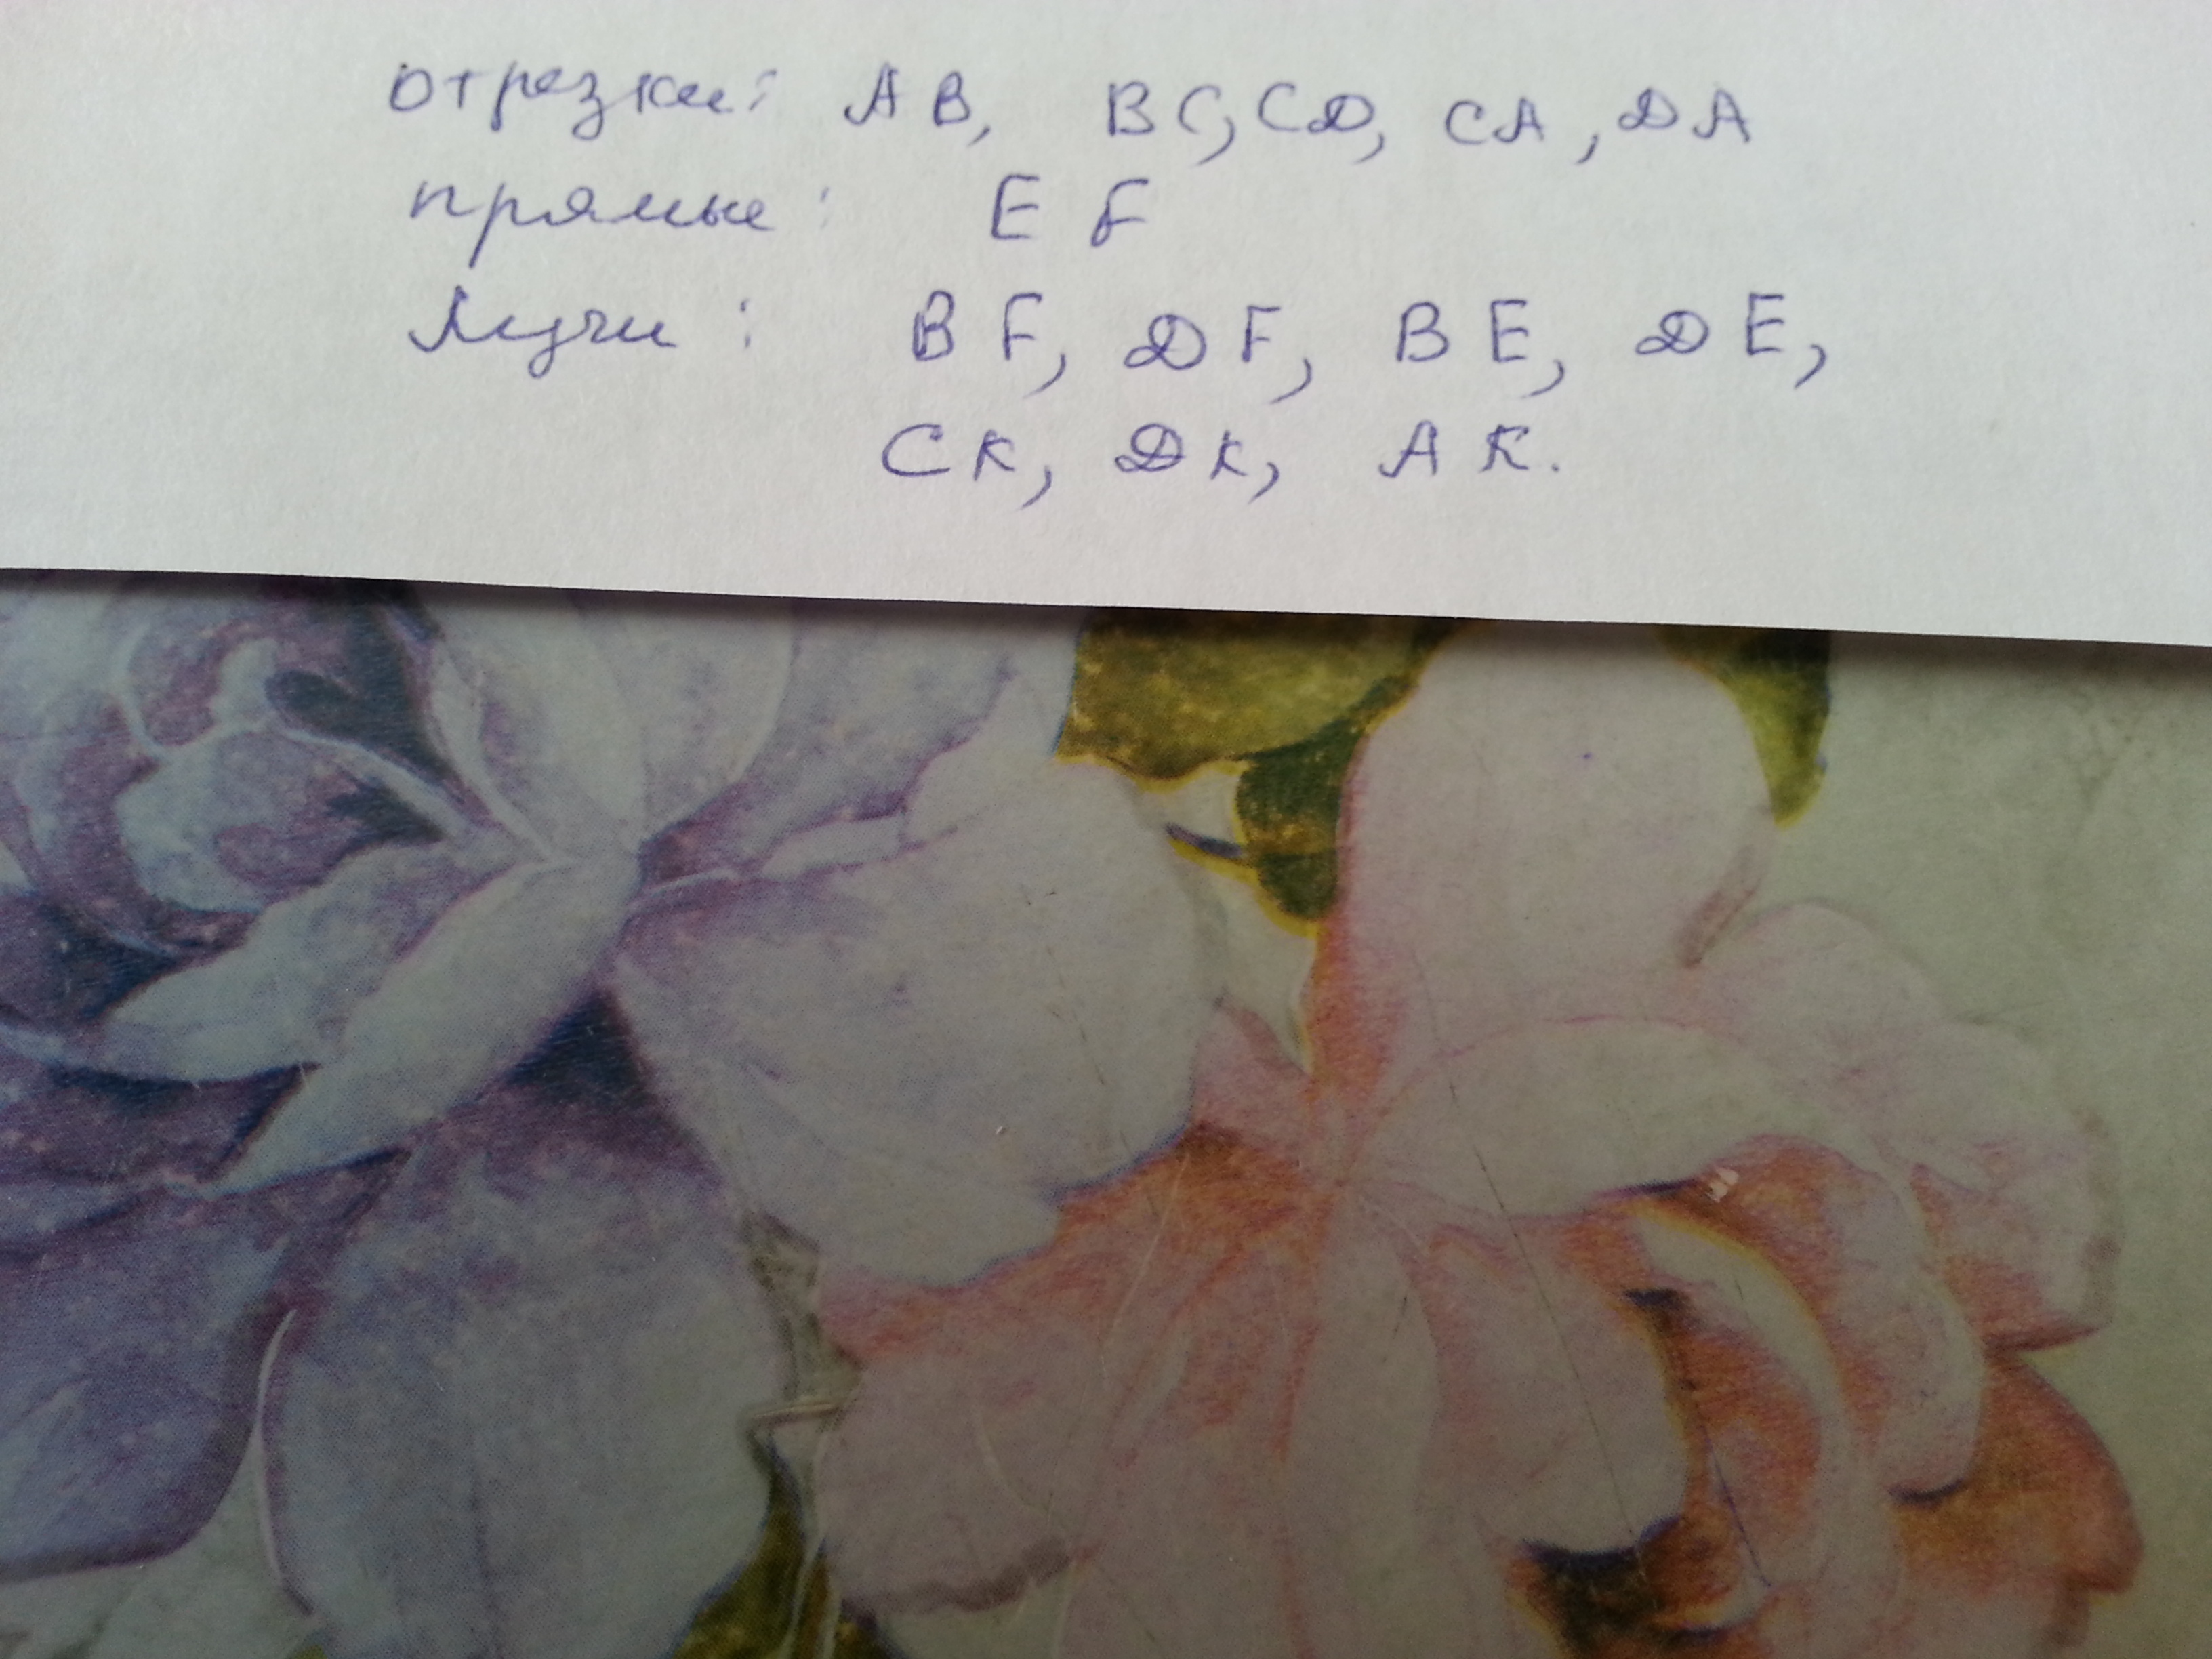 отрезки: AB, BC, CD, CA, DA
прямые: EF
Лучи: BF, DF, BE, DE,
CK, DK, AK.